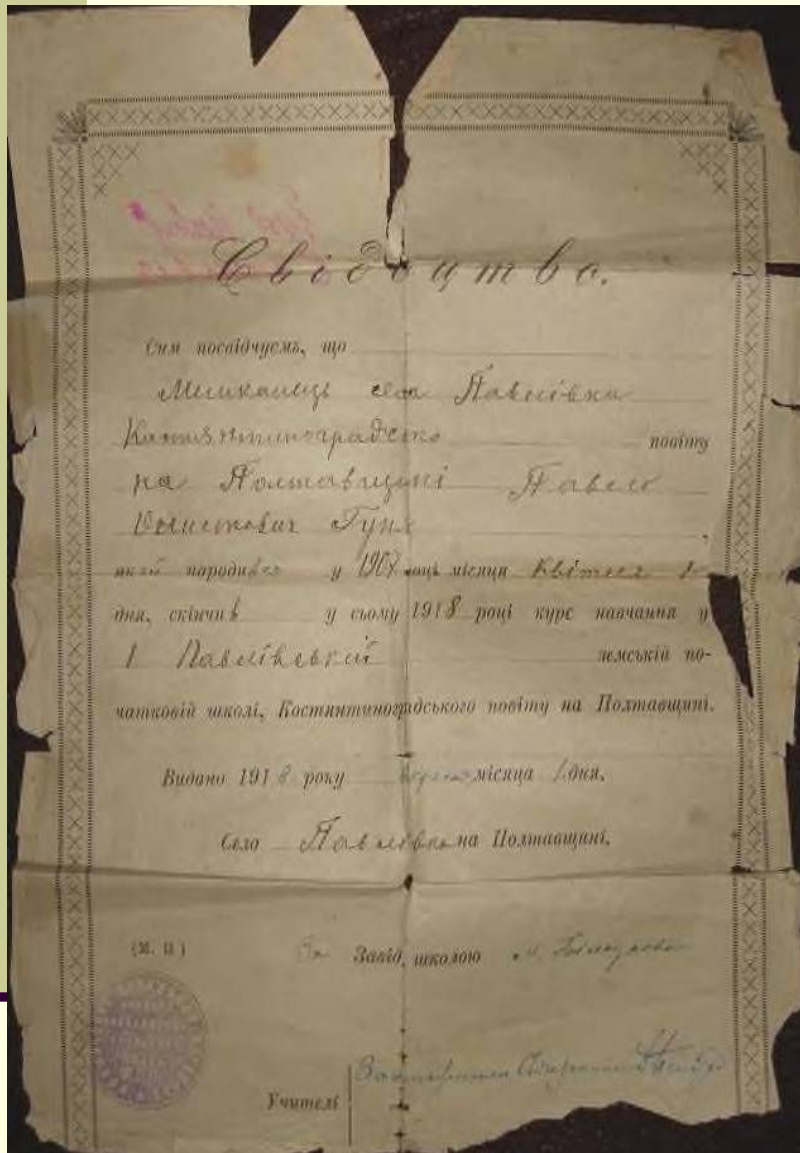 Свідоцтво.
Сим посвідчуємъ, що
Мешканець села Павлівка
Констянтиноградсько повіту
на Полтавщині Павло
Гуня
який народився у 1907 році місяця Квітня 1
дня, скінчив у сьому 1918 році курс навчання у
1 Павлівській земській по-
чатковій школі, Костянтиноградського повіту на Полтавщині.
Видано 1918 року місяця 1 дня.
Село Павлівка на Полтавщині.
(М. П.) За Завід. школою
Учителі